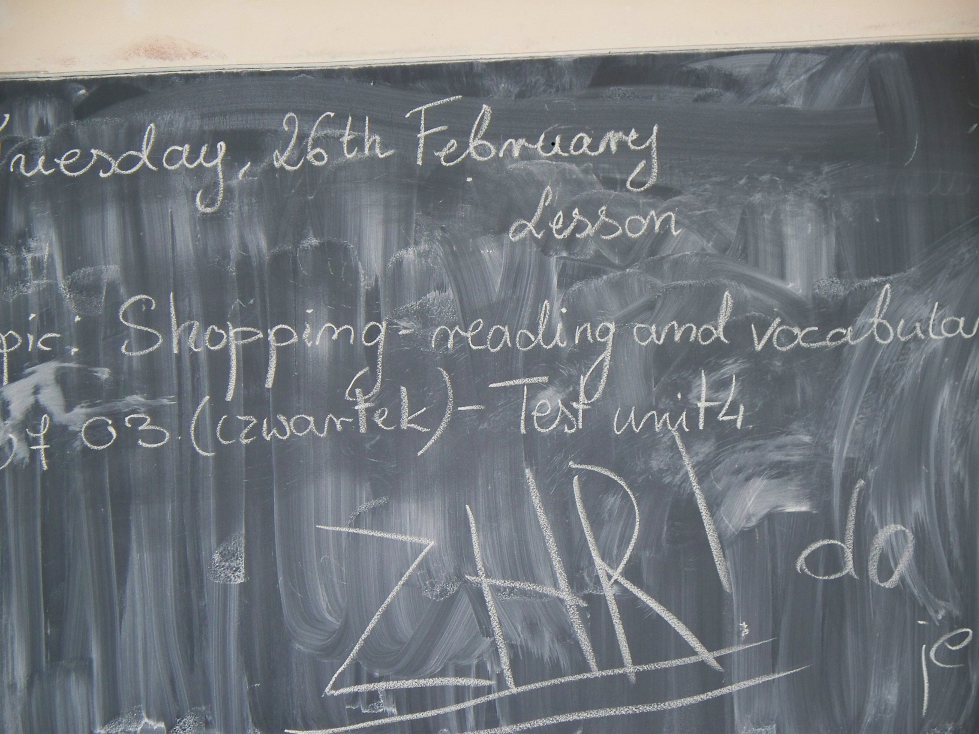 Tuesday, 26th February
Lesson
pic: Shopping - reading and vocabula
07 03 (czwartek) - Test unit 4
ZHR!
da
je